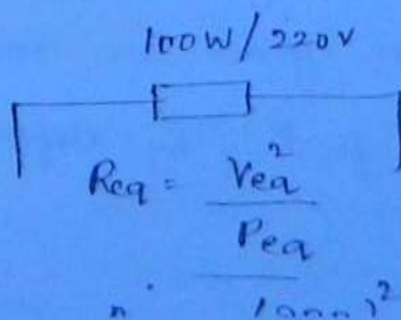 100W/220V
Req = Veq²
Peq